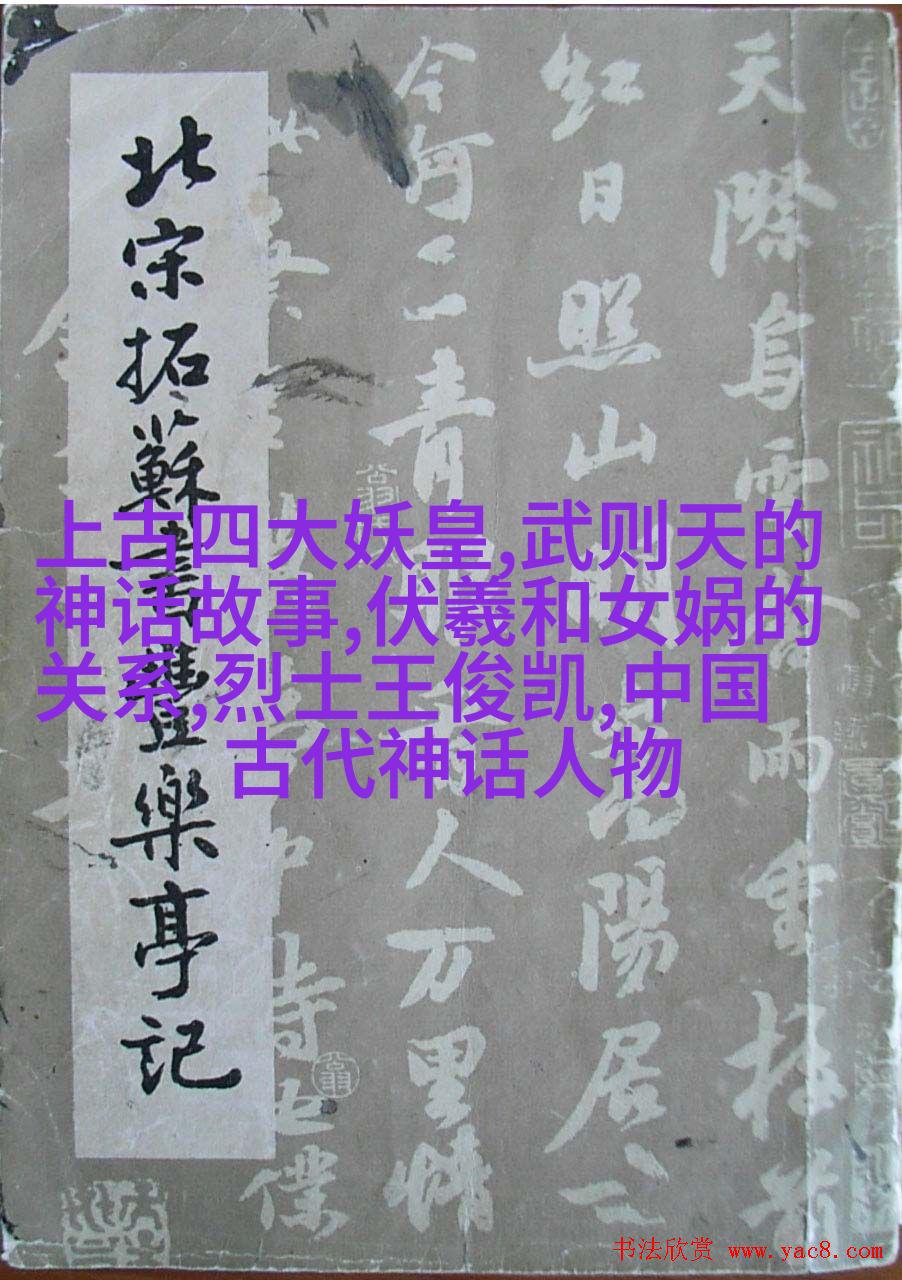 天際烏雲含雨重樓前
紅日照山明嵩陽居士
今何在青眼看人万里情
此蔡
中詩也僕
北宋拓蘇書豐樂亭記
上古四大妖皇,武则天的
神话故事,伏羲和女娲的
关系,烈士王俊凯,中国
古代神话人物
书法欣赏 www.yac8.com